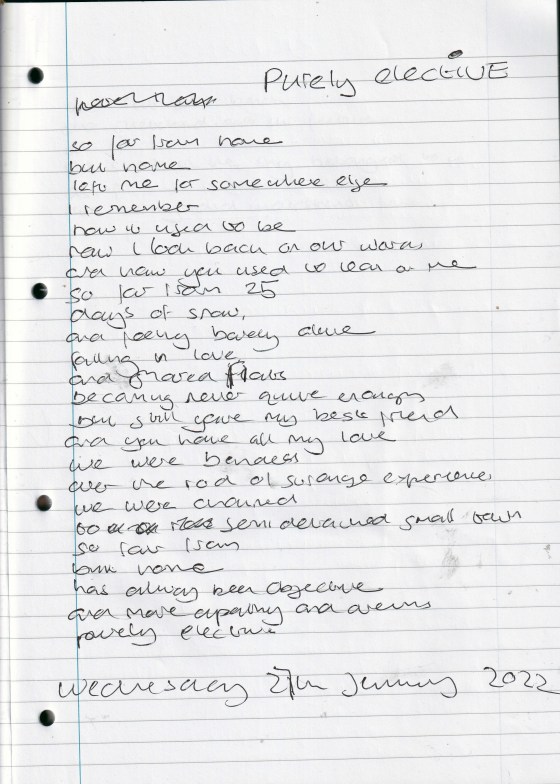 Purely elective
so far from home
but home
left me for somewhere else
I remember
how it used to be
now I look back on our words
and how you used to lean on me
so far from 25
days of snow,
and feeling barely alive
falling in love
and shared flats
becoming never quite enough
but still gave my best friend
and you have all my love
we were
over the rod of strange experience
we were chained
to semi detached small town
so far from
but home
has always been objective
and more and
purely elective
Wednesday 27th January 2022